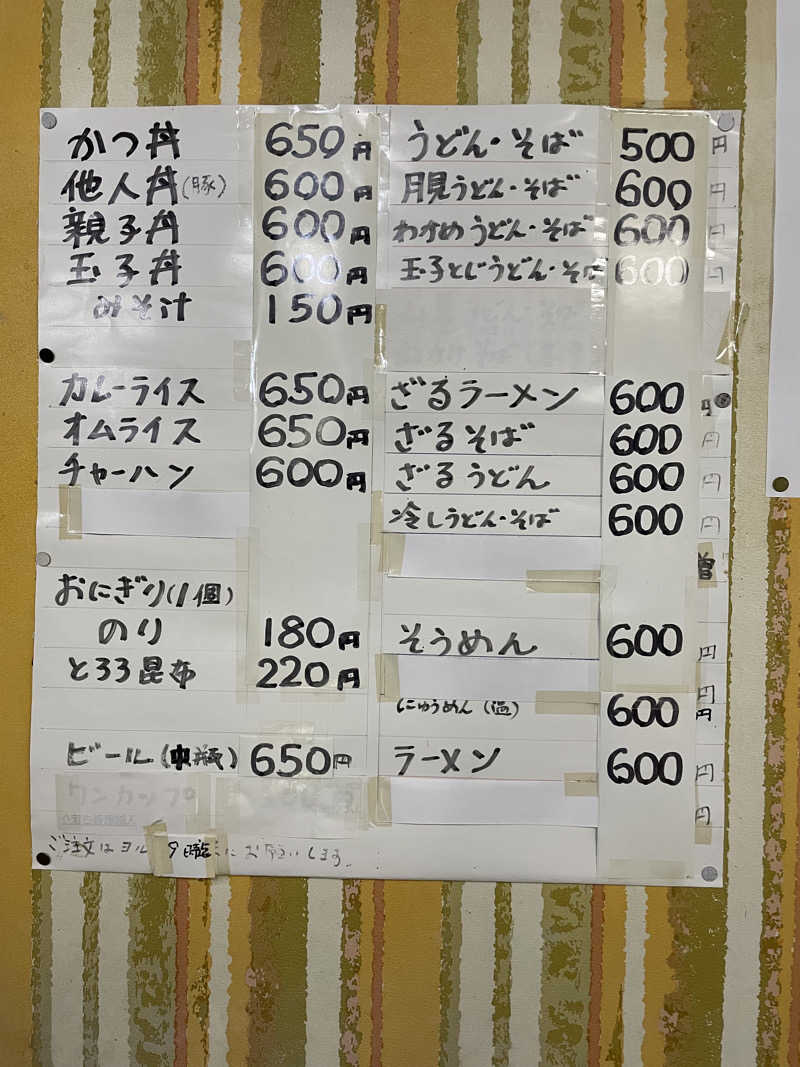 かつ丼 650円
他人丼(豚) 600円
親子丼 600円
玉子丼 600円
みそ汁 150円
カレーライス 650円
オムライス 650円
チャーハン 600円
おにぎり(1個)
のり 180円
とろろ昆布 220円
ビール(中瓶) 650円
ワンカップ
ご注文はヨル9時にお願いします。
うどん・そば 500円
月見うどん・そば 600円
わかめうどん・そば 600円
玉子とじうどん・そば 600円
ざるラーメン 600円
ざるそば 600円
ざるうどん 600円
冷しうどん・そば 600円
そうめん 600円
円
にゅうめん(温) 600円
ラーメン 600円
円